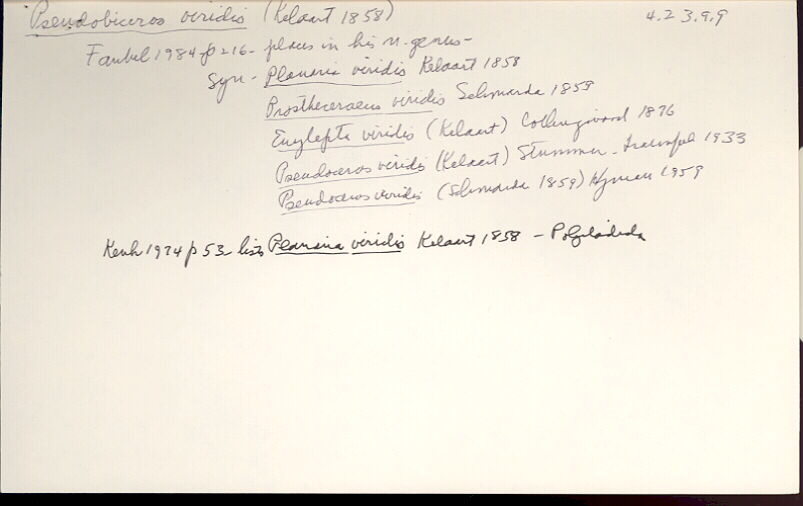 Pseudobiceros viridis (Kelaart 1858) 4.2 3.9.9
Faubel 1984 p 216 - places in his n. genus -
Syn - Planaria viridis Kelaart 1858
Prostheceraeus viridis Schmarda 1859
Eurylepta viridis (Kelaart) Collingwood 1876
Pseudoceros viridis (Kelaart) Stummer-Traunfels 1933
Pseudoceros viridis (Schmarda 1859) Hyman 1959
Kenk 1974 p 53 - lists Planaria viridis Kelaart 1858 - Polycladida